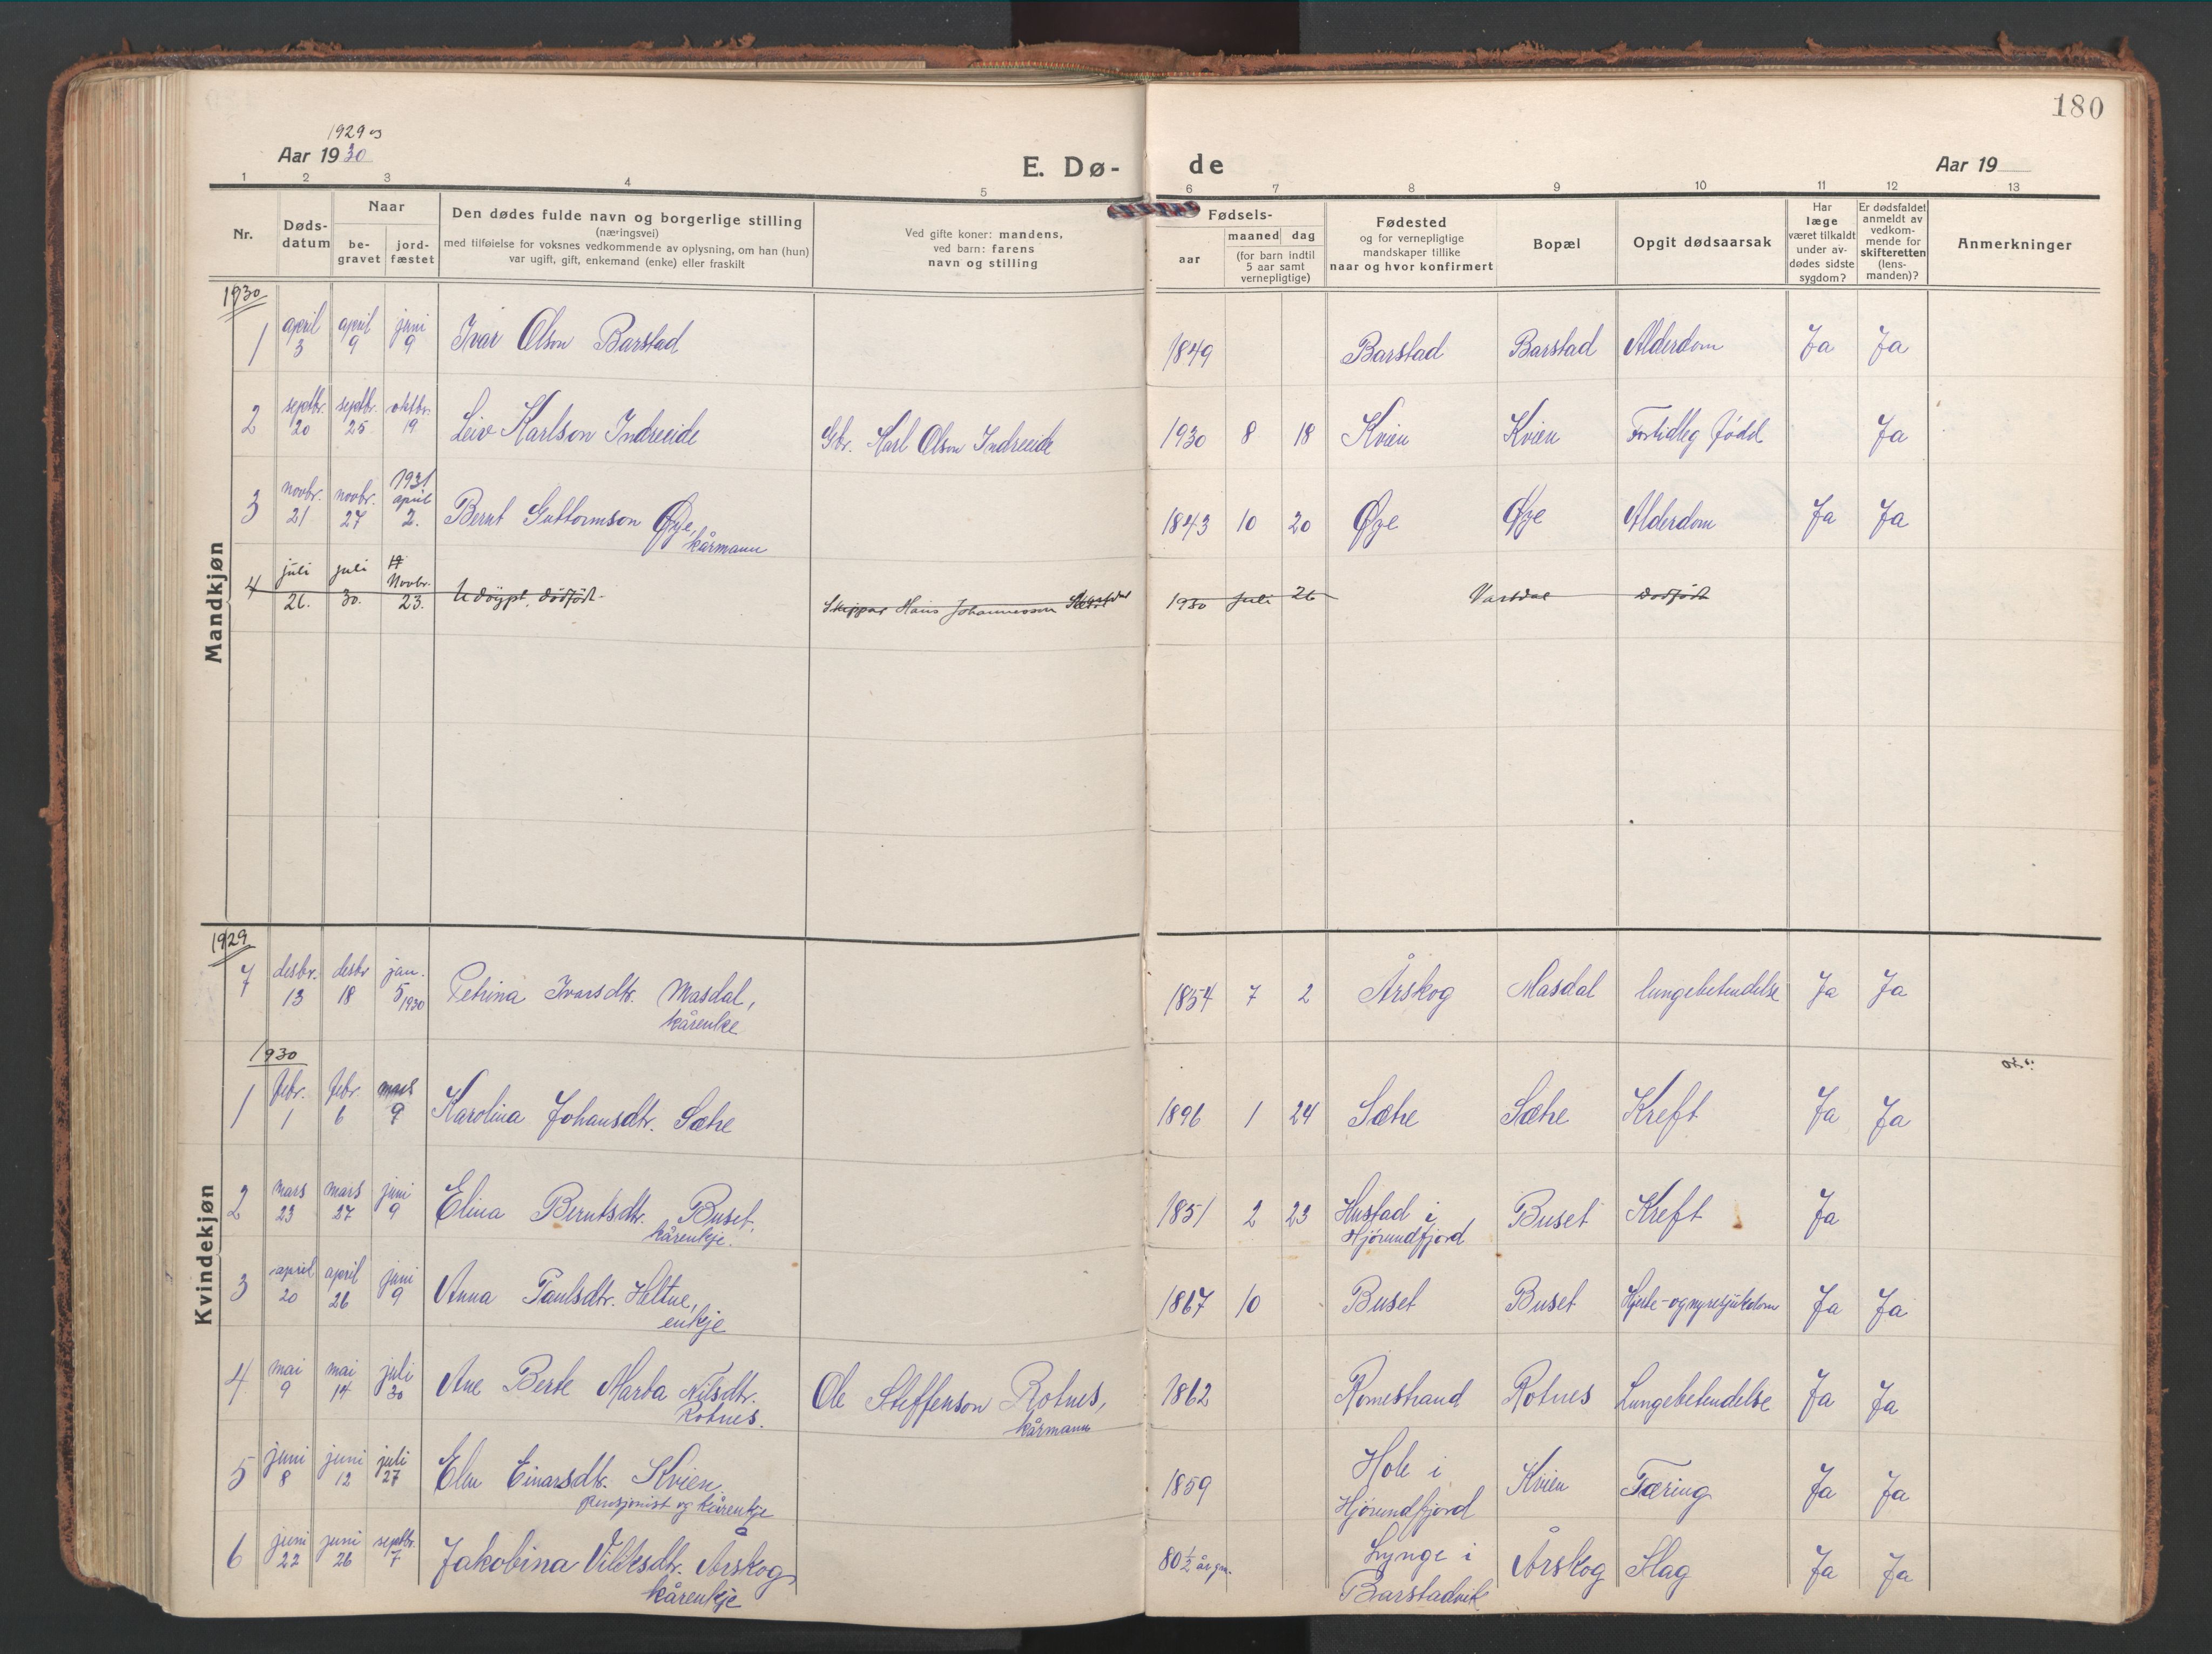 180
1929 og
Aar 1930
E. Dø- de
Aar 19
1 2 3 4 5 6 7 8 9 10 11 12 13
Nr.
Døds-
datum
Naar
be-
gravet
jord-
fæstet
Den dødes fulde navn og borgerlige stilling
(næringsvei)
med tilføielse for voksnes vedkommende av oplysning, om han (hun)
var ugift, gift, enkemand (enke) eller fraskilt
Ved gifte koner: mandens,
ved barn: farens
navn og stilling
Fødsels-
aar
maaned dag
(for barn indtil
5 aar samt
vernepligtige)
Fødested
og for vernepligtige
mandskaper tillike
naar og hvor konfirmert
Bopæl
Opgit dødsaarsak
Har
læge
været tilkaldt
under av-
dødes sidste
sygdom?
Er dødsfaldet
anmeldt av
vedkom-
mende for
skifteretten
(lens-
manden)?
Anmerkninger
Mandkjøn
1930
1 april 3 april 9 juni 9 Ivar Olson Barstad 1849 Barstad Barstad Alderdom Ja Ja
2 septbr. 20 septbr. 25 oktbr. 19 Leiv Karlson Indreeide Gbr. Karl Olson Indreeide 1930 8 18 Kvien Kvien Fortidleg född Ja
3 novbr. 21 novbr. 27 1931 april 2. Bernt Guttormson Øye, 1843 10 20 Øye Øye Alderdom Ja Ja
kårmann
4 juli 26. juli 30. Novbr. 23. Udöypt, dödfödt. Skippar Hans Johannesson 1930 juli 26 Vartdal Dödfödt
Kvindekjøn
1929
7 desbr. 13 desbr 18 jan. 5 1930 Petrina Ivarsdtr. Masdal, 1854 7 2 Årskog Masdal lungebetendelse Ja Ja
kårenke
1930
1 febr. 1 febr. 6 mars 9 Karolina Johansdtr. Sætre 1896 1 24 Sætre Sætre Kreft Ja Ja
2 mars 23 mars 27 juni 9 Elina Berntsdtr. Buset, 1851 2 23 Hustad i Buset Kreft Ja
kårenkje. Hjörundfjord
3 april 20 april 26 juni 9 Anna Paulsdtr. Heltne, 1867 10 Buset Buset Hjerte- og nyresjukdom Ja Ja
enkje
4 mai 9 mai 14 juli 30 Ane Berte Marta Nilsdtr. Ole Steffenson Rotnes, 1862 Romestrand Rotnes Lungebetendelse Ja Ja
Rotnes. kårmann
5 juni 8 juni 12 juli 27 Elen Einarsdtr. Kvien 1859 Hole i Kvien Tæring Ja Ja
pensjonist og kårenkje Hjörundfjord
6 juni 22 juni 26 septbr. 7 Jakobina Årskog, 80½ år gm. Lynge i Årskog Slag Ja Ja
kårenkje Barstadvik